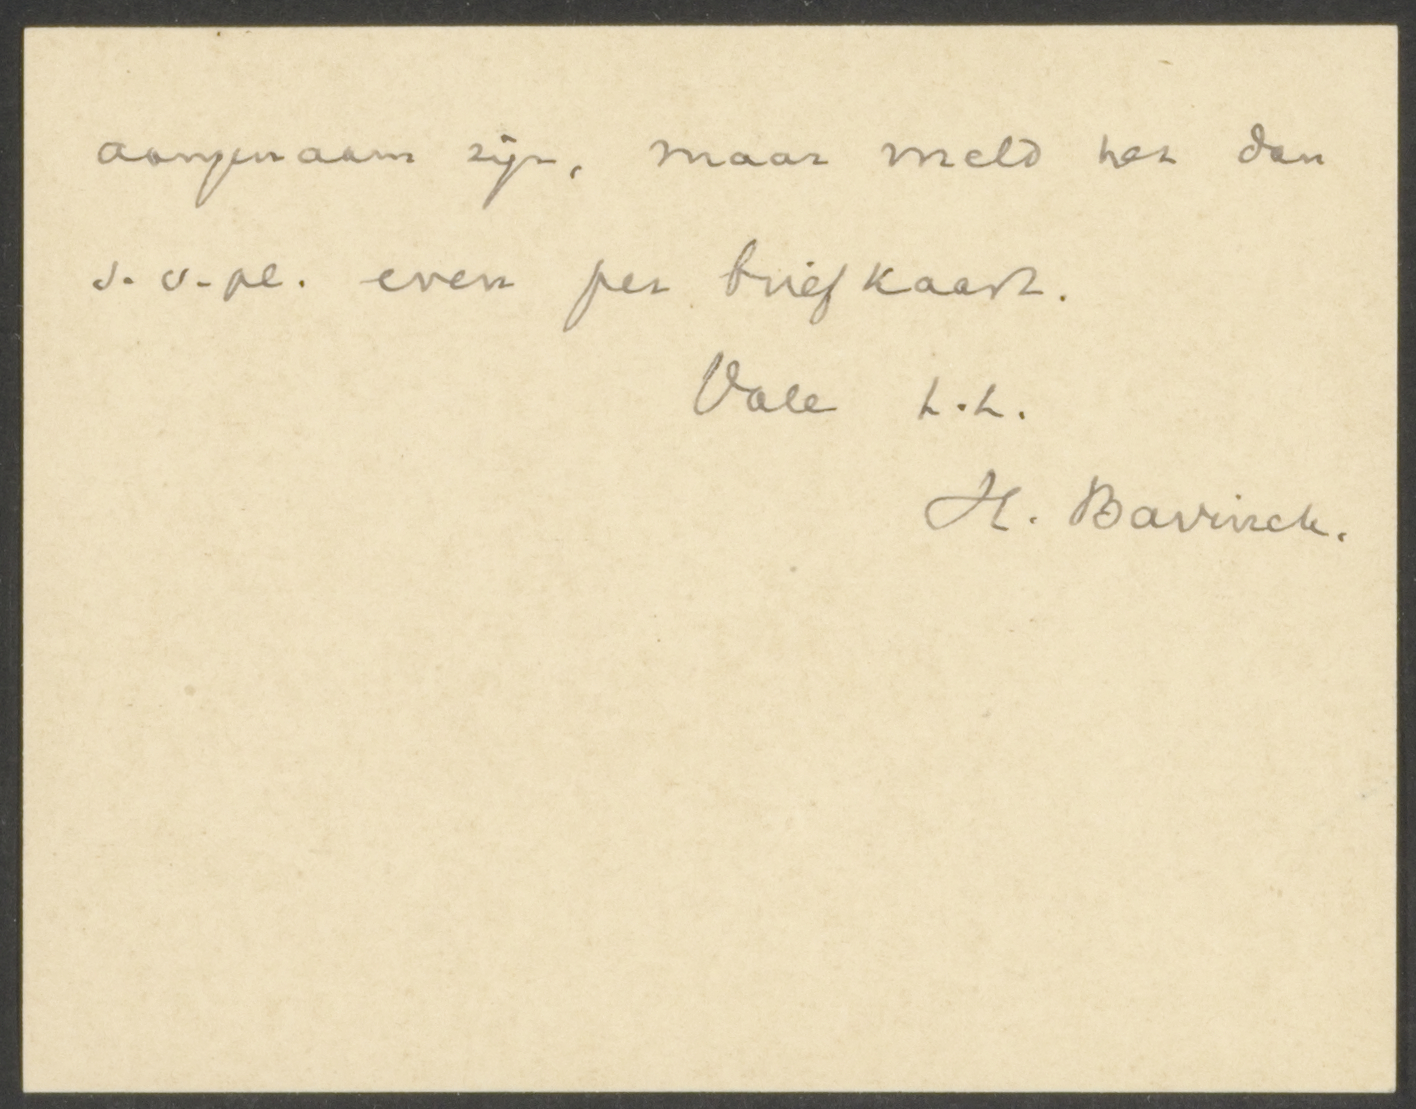 aangenaam zijn, maar meld het dan
s.v.pl. even per briefkaart.
Vale t.t.
H. Bavinck.